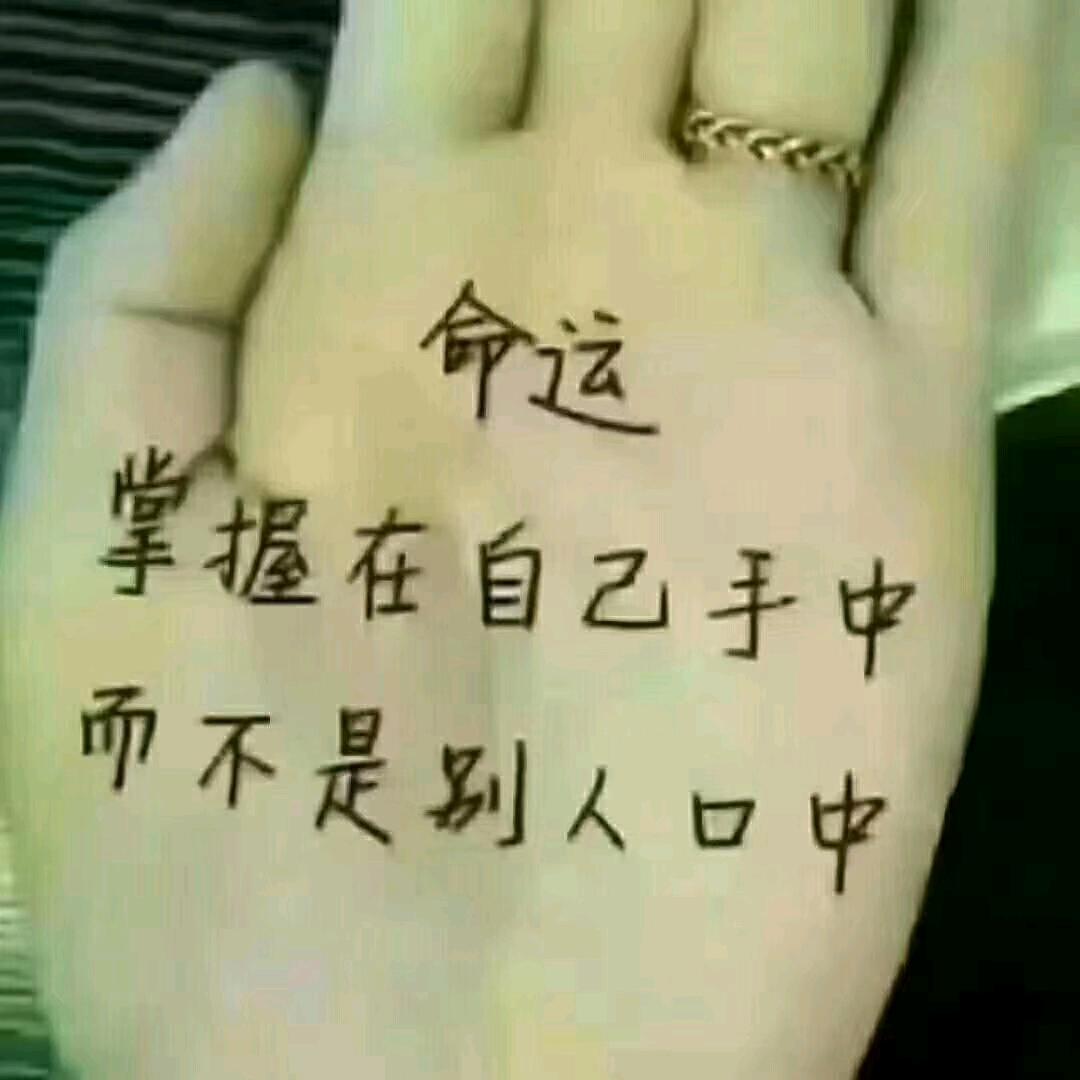 命运
掌握在自己手中
而不是别人口中